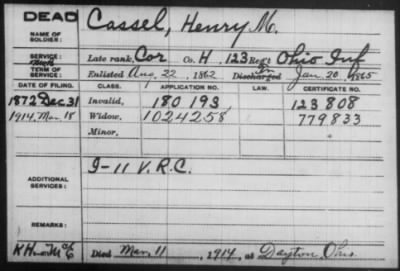 DEAD
NAME OF SOLDIER: Cassel, Henry M.
SERVICE: Late rank, Cor Co. H, 123 Reg't Ohio Inf
TERM OF SERVICE: Enlisted Aug. 22, 1862 Discharged Jan. 20, 1865
DATE OF FILING. CLASS. APPLICATION NO. LAW. CERTIFICATE NO.
1872 Dec 31 Invalid, 180 193 123 808
1914, Mar. 18 Widow, 1024258 779833
Minor,
ADDITIONAL SERVICES: I-11 V.R.C.
REMARKS:
Died Mar. 11, 1914, at Dayton, Ohio.